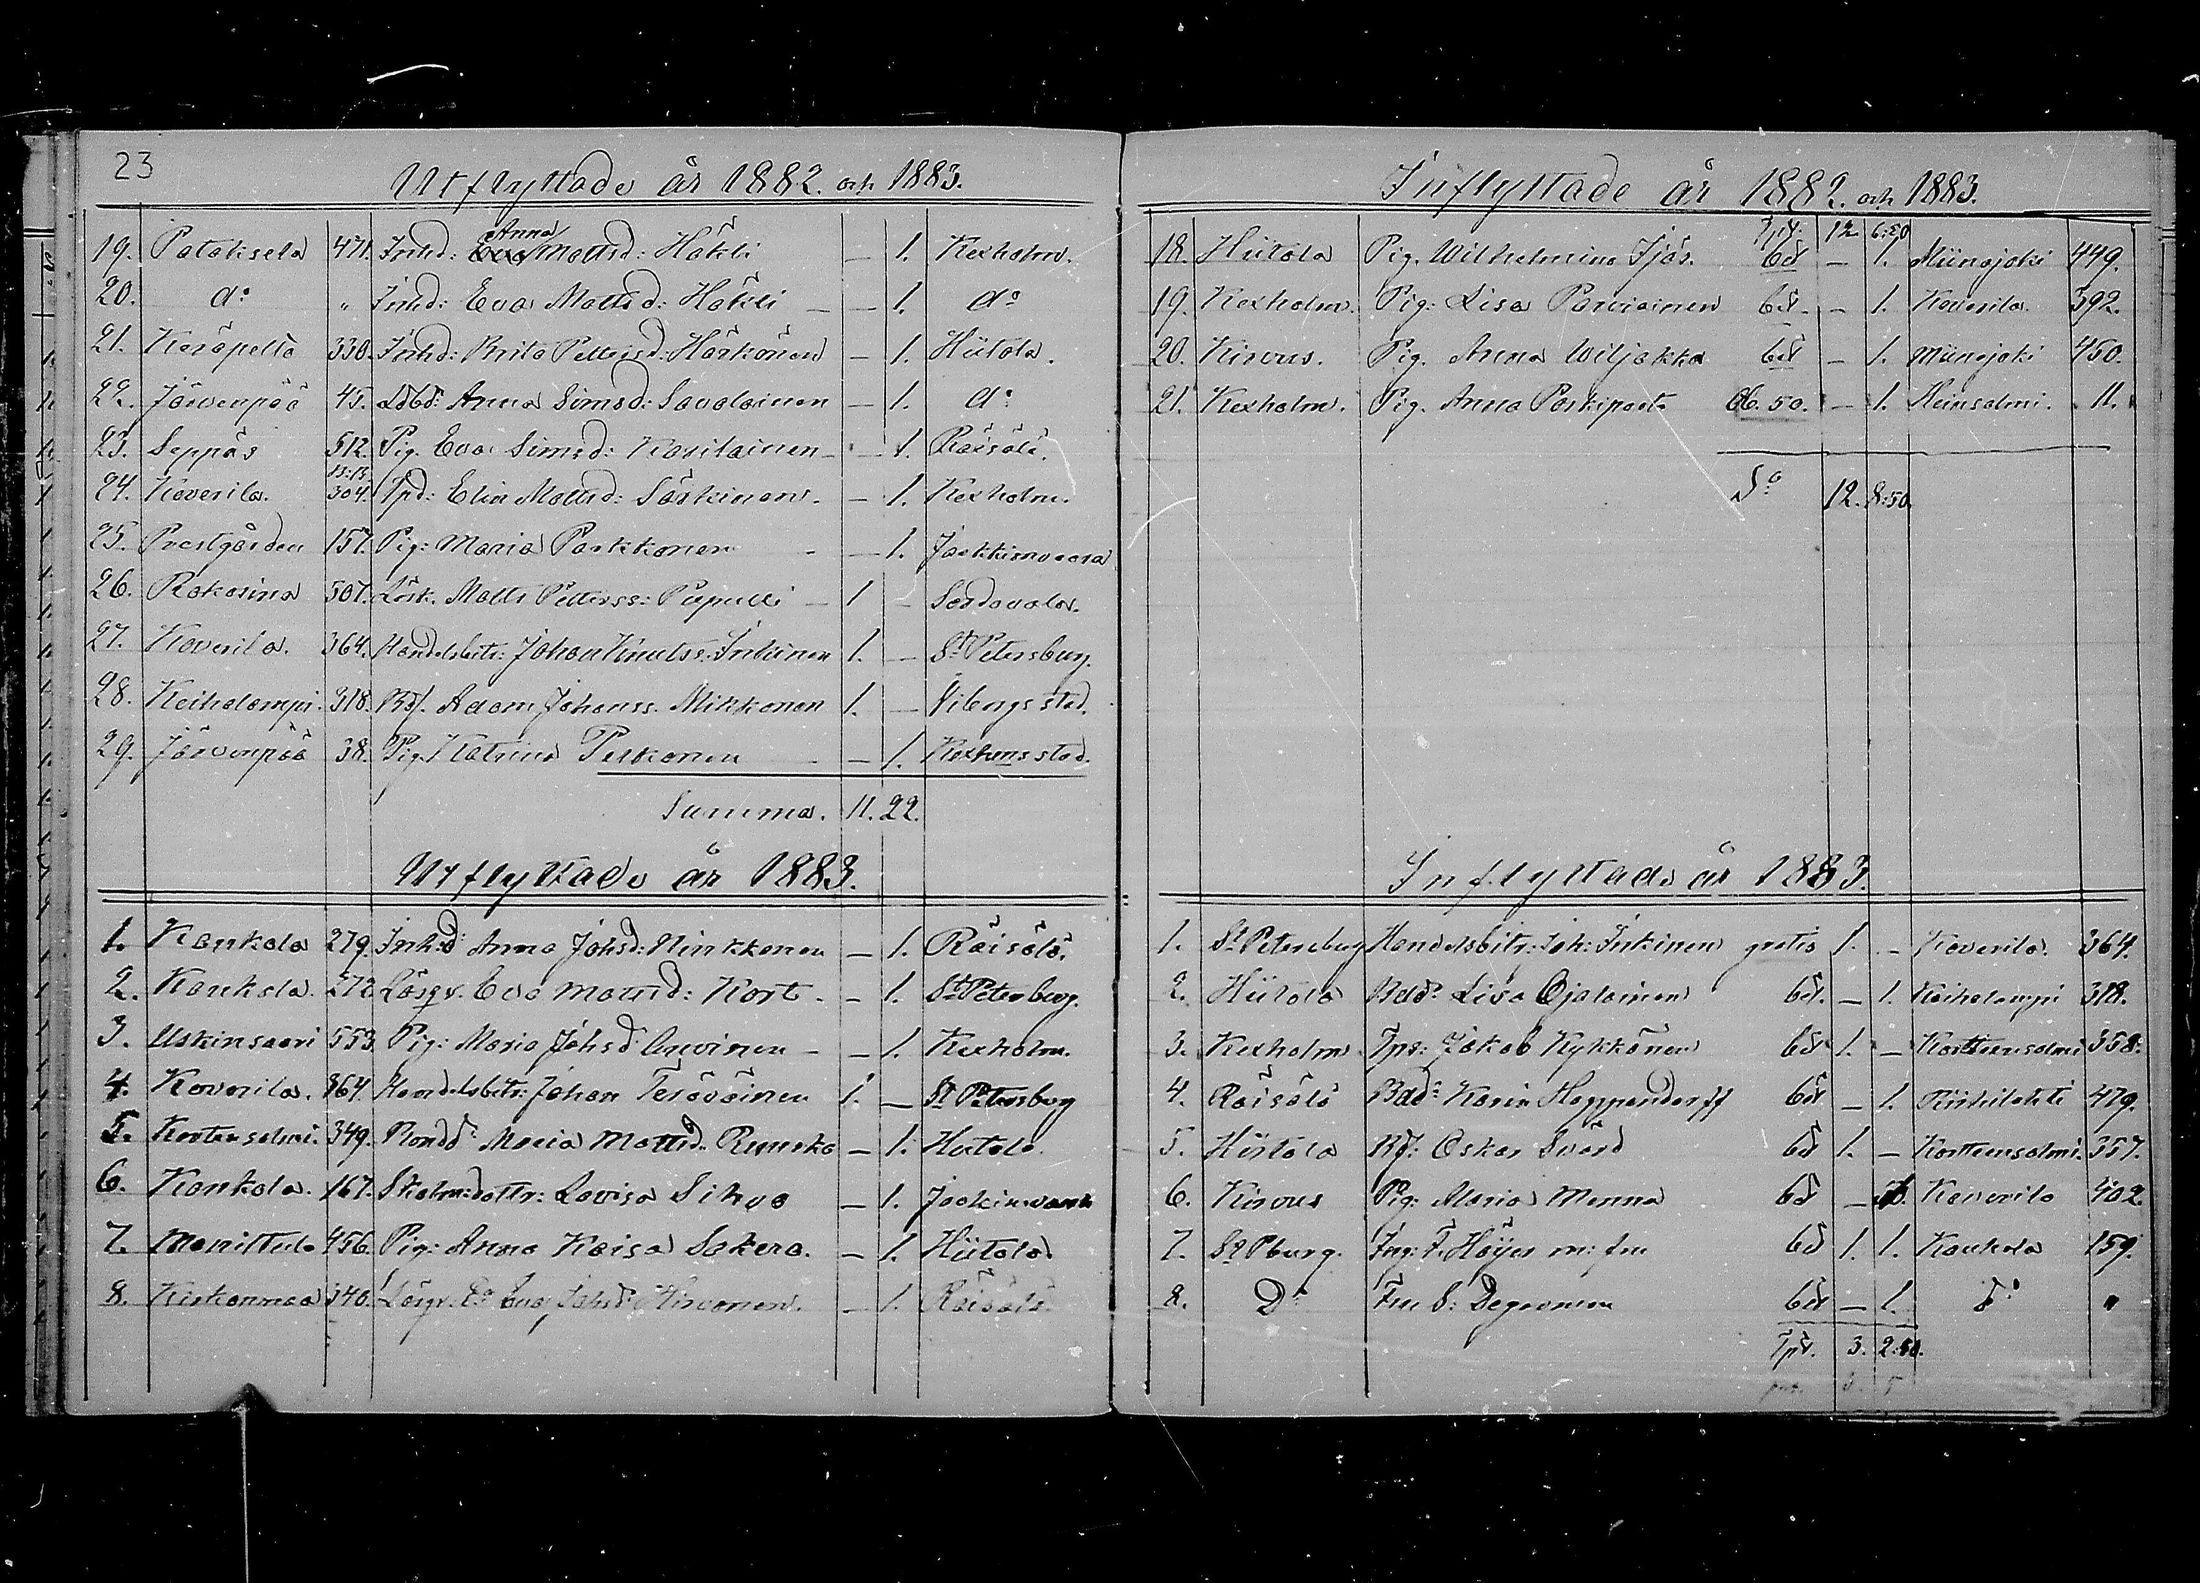 23
Utflyttade år 1882. och 1883.
19. Pataksela 471. Inhd: Anna Mattsd: Häkli — 1. Kexholm.
20. do " Inhd: Eva Mattsd: Häkli — 1. do
21. Keräpelto 330. Inhd: Brita Pettersd: Härkönen — 1. Hiitola.
22. Järvenpää 45. Anna Simsd: Savolainen — 1. do
23. Seppäs 512. Pig. Eva Simsd: Kavilainen — 1. Räisälä.
24. Koverila. 304. Tpd: Elin Mattsd: Särkinen. — 1. Kexholm.
25. Prestgården 157. Pig: Maria Parkkonen — 1. Jaakkimvaara
26. Rakosina 507. Lösk. Matts Petterss: Pupulli — 1 — Sordavala.
27. Koverila. 364. Handelsbitr: Johan Knutss. Inkinen 1. — St Petersburg.
28. Keiholampi. 318. Bdf. Adam Johanss. Mikkonen 1. — Viborgs stad.
29. Järvenpää 38. Pig. Katrina Peskonen — 1. Kexholms stad.
Summa. 11. 22.
Utflyttade år 1883.
1. Kaukola 279. Inh:d Anna Johsd: Hinkkonen — 1. Räisälä.
2. Kaukola. 272 Lösqv. Eva Mattsd: Kort. — 1. St Petersburg.
3. Uskinsaari 553 Pig: Maria Johsd — 1. Kexholm.
4. Koverila. 364. Handelsbitr: Johan Terävöinen 1. — St Petersburg
5. Kortensalmi. 349. Maria Mattsd. Ruuska — 1. Hiitola.
6. Kaukola. 167. Lovisa Sihvo — 1. Jaakimvaara
7. 456. Pig: Anna Kaisa Sakera. — 1. Hiitola
8. Kirkonmaa 340. Lösqv. Eva Johsd: Hirvonen. — 1. Räisälä.
Inflyttade år 1882. och 1883.
12 6:50
18. Hiitola Pig. Wilhelmina Tjäs. bet — 1. Miinajoki 449.
19. Kexholm. Pig: Lisa Parviainen bet. — 1. Koverila. 392.
20. Kirvus. Pig. Anna Wiljakka bet — 1. Miinajoki 450.
21. Kexholm. Pig. Anna 50. — 1. Heinsalmi. 11.
So 12. 8:50.
Inflyttade år 1883.
1. St Petersburg Handelsbitr: Joh: Inkinen gratis 1. — Koverila. 364.
2. Hiitola Lisa Ojalainen bet. — 1. Keiholampi 318.
3. Kexholm Tps: Jakob Kykkönen bet 1. — Korttensalmi 358.
4. Räisälä Karin Hoppendorff bet — 1. Riihilahti 479.
5. Hiitola Oskar Svärd bet 1. — Korttensalmi. 357.
6. Kirvus Pig: Maria Menna bet — Koverila 402
7. St Pburg. Ing: F. Höijer m: fru bet 1. 1. Kaukola 159.
8. Do Fru S: Degerman bet — 1. do "
3. 2:50.